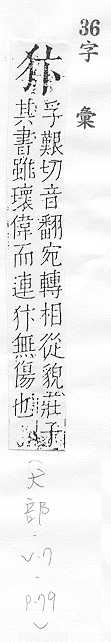 36字 彙
犿
孚艱切音翻宛轉相從貌莊子
其書雖瓌偉而連犿無傷也
(犬部.V.7.p.79)